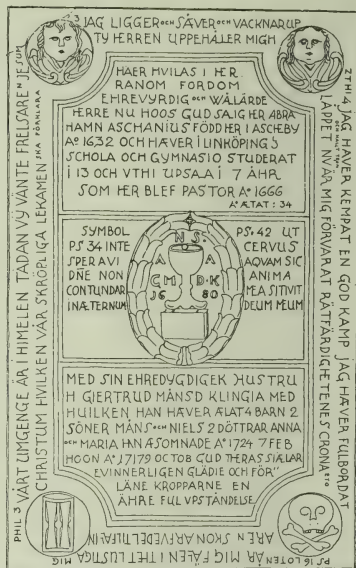 PS 3 JAG LIGGER OCH SÅVER OCH VACKNAR UP
TY HERREN UPPEHÅLLER MIGH
2 THI 4 JAG HAVER KEMPAT EN GOD KAMP JAG HÆVER FULBORDAT
LÅPPET NV ÄR MIG FÖRVARAT RÄTFÄRDIGHETENES CRONA
PS 16 LOTEN ÄR MIG FALEN I THET LUSTIGA
MIG
PHIL 3 VÅRT UMGENGE ÄR I HIMELEN TADAN VY VÄNTE FRELSAREN JESUM
CHRISTUM HVILKEN VÅR SKRÖPLIGA LEKAMEN SKA FÖRKLARA
HAER HVILAS I HR
RANOM FORDOM
EHREVYRDIG OCH WÅLÄRDE
HERRE NU HOOS GUD SAIG HER ABRA
HAMN ASCHANIUS FÖDD HER I ASCHEBY
A° 1632 OCH HÆVER I LINKÖPINGS
SCHOLA OCH GYMNASIO STUDERAT
I 13 OCH VTHI UPSALA I 7 ÅHR
SOM HER BLEF PASTOR A° 1666
A° ÆTAT : 34
SYMBOL
PS 34 INTE
SPERAVI
DÑE NON
CONTUNDAR
IN ÆTERNUM
N S
A A
C M D K
16 80
PS. 42 UT
CERVUS
AQVAM SIC
ANIMA
MEA SITIVIT
DEUM MEUM
MED SIN EHREDYGDIGEK HUSTRU
H GIERTRUD MÅNSD KLINGIA MED
HUILKEN HAN HÆVER ÆLAT 4 BARN 2
SÖNER MÅNS OCH NIELS 2 DÖTTRAR ANNA
OCH MARIA HAN ÆSOMNADE A° 1724 7 FEB
HOON A° 17179 OCTOB GUD THERAS SIÆLAR
EVINNERLIGEN GLÄDIE OCH FÖR"
LÄNE KROPPARNE EN
ÄHRE FUL VPSTÅNDELSE